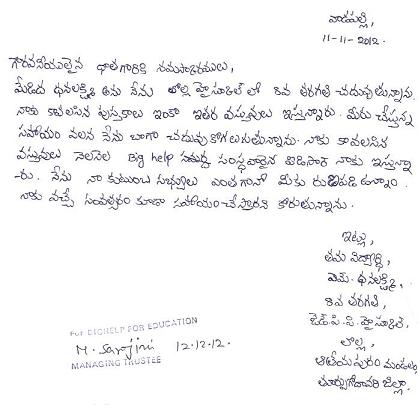 వాడపల్లి,
11-11-2012.
గౌరవనీయులైన దాతగారికి నమస్కారములు,
మేడిద ధనలక్ష్మి అను నేను లొల్ల హైస్కూల్ లో 8వ తరగతి చదువుతున్నాను.
నాకు కావలసిన పుస్తకాలు ఇంకా ఇతర వస్తువులు ఇస్తున్నారు. మీరు చేస్తున్న
సహాయం వలన నేను బాగా చదువుకోగలుగుతున్నాను. నాకు కావలసిన
వస్తువులు నెలనెల Big help సమర్థ సంస్థవారైన నాకు ఇస్తున్నా
-రు. నేను నా కుటుంబ సభ్యులు ఎంతగానో మీకు రుణపడి ఉన్నాం.
నాకు వచ్చే సంవత్సరం కూడా సహాయంచేస్తారని కోరుతున్నాను.
ఇట్లు,
తమ విద్యార్థి,
ఎమ్. ధనలక్ష్మి,
8వ తరగతి,
జెడ్.పి.పి.హైస్కూల్,
లొల్ల,
ఆత్రేయపురం మండలం,
తూర్పుగోదావరి జిల్లా.
For BIGHELP FOR EDUCATION
M. Sarojini 12.12.12.
MANAGING TRUSTEE